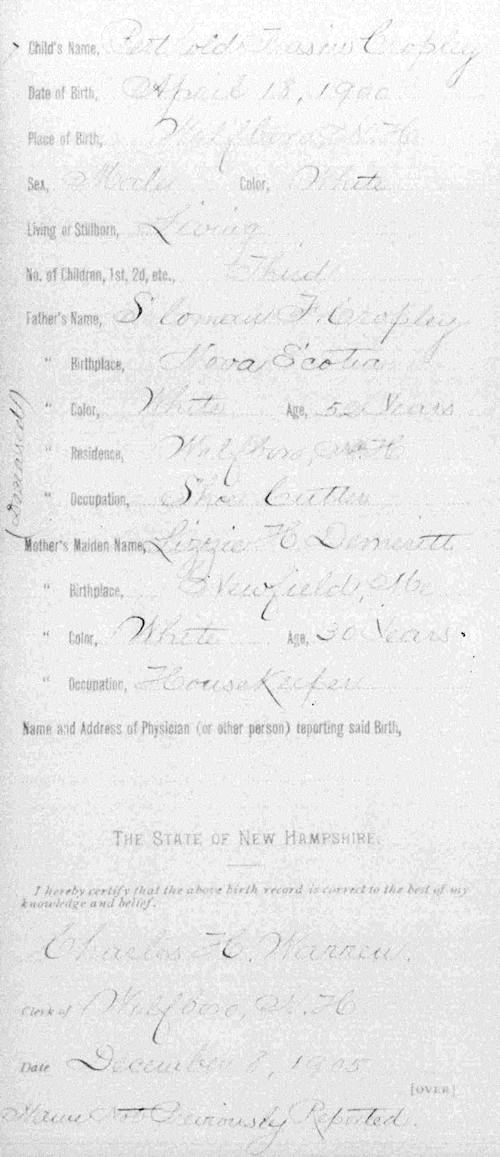 Child's Name, Cropley
Date of Birth, April 18, 1900
Place of Birth, Wolfboro, N. H.
Sex, Male Color, White
Living or Stillborn, Living
No. of Children, 1st, 2d, etc., Third
Father's Name, F. Cropley
" Birthplace, Nova Scotia
" Color, White Age, 52 Years
" Residence, Wolfboro, N. H
" Occupation, Shoe Cutter
(Deceased)
Mother's Maiden Name, Lizzie H. Demeritt
" Birthplace, Newfield, Me
" Color, White Age, 30 Years.
" Occupation, Housekeeper
Name and Address of Physician (or other person) reporting said Birth,
THE STATE OF NEW HAMPSHIRE.
I hereby certify that the above birth record is correct to the best of my
knowledge and belief.
Charles H. Warren.
Clerk of Wolfboro, N. H
Date December 8, 1905
[OVER]
Name Not Previously Reported.